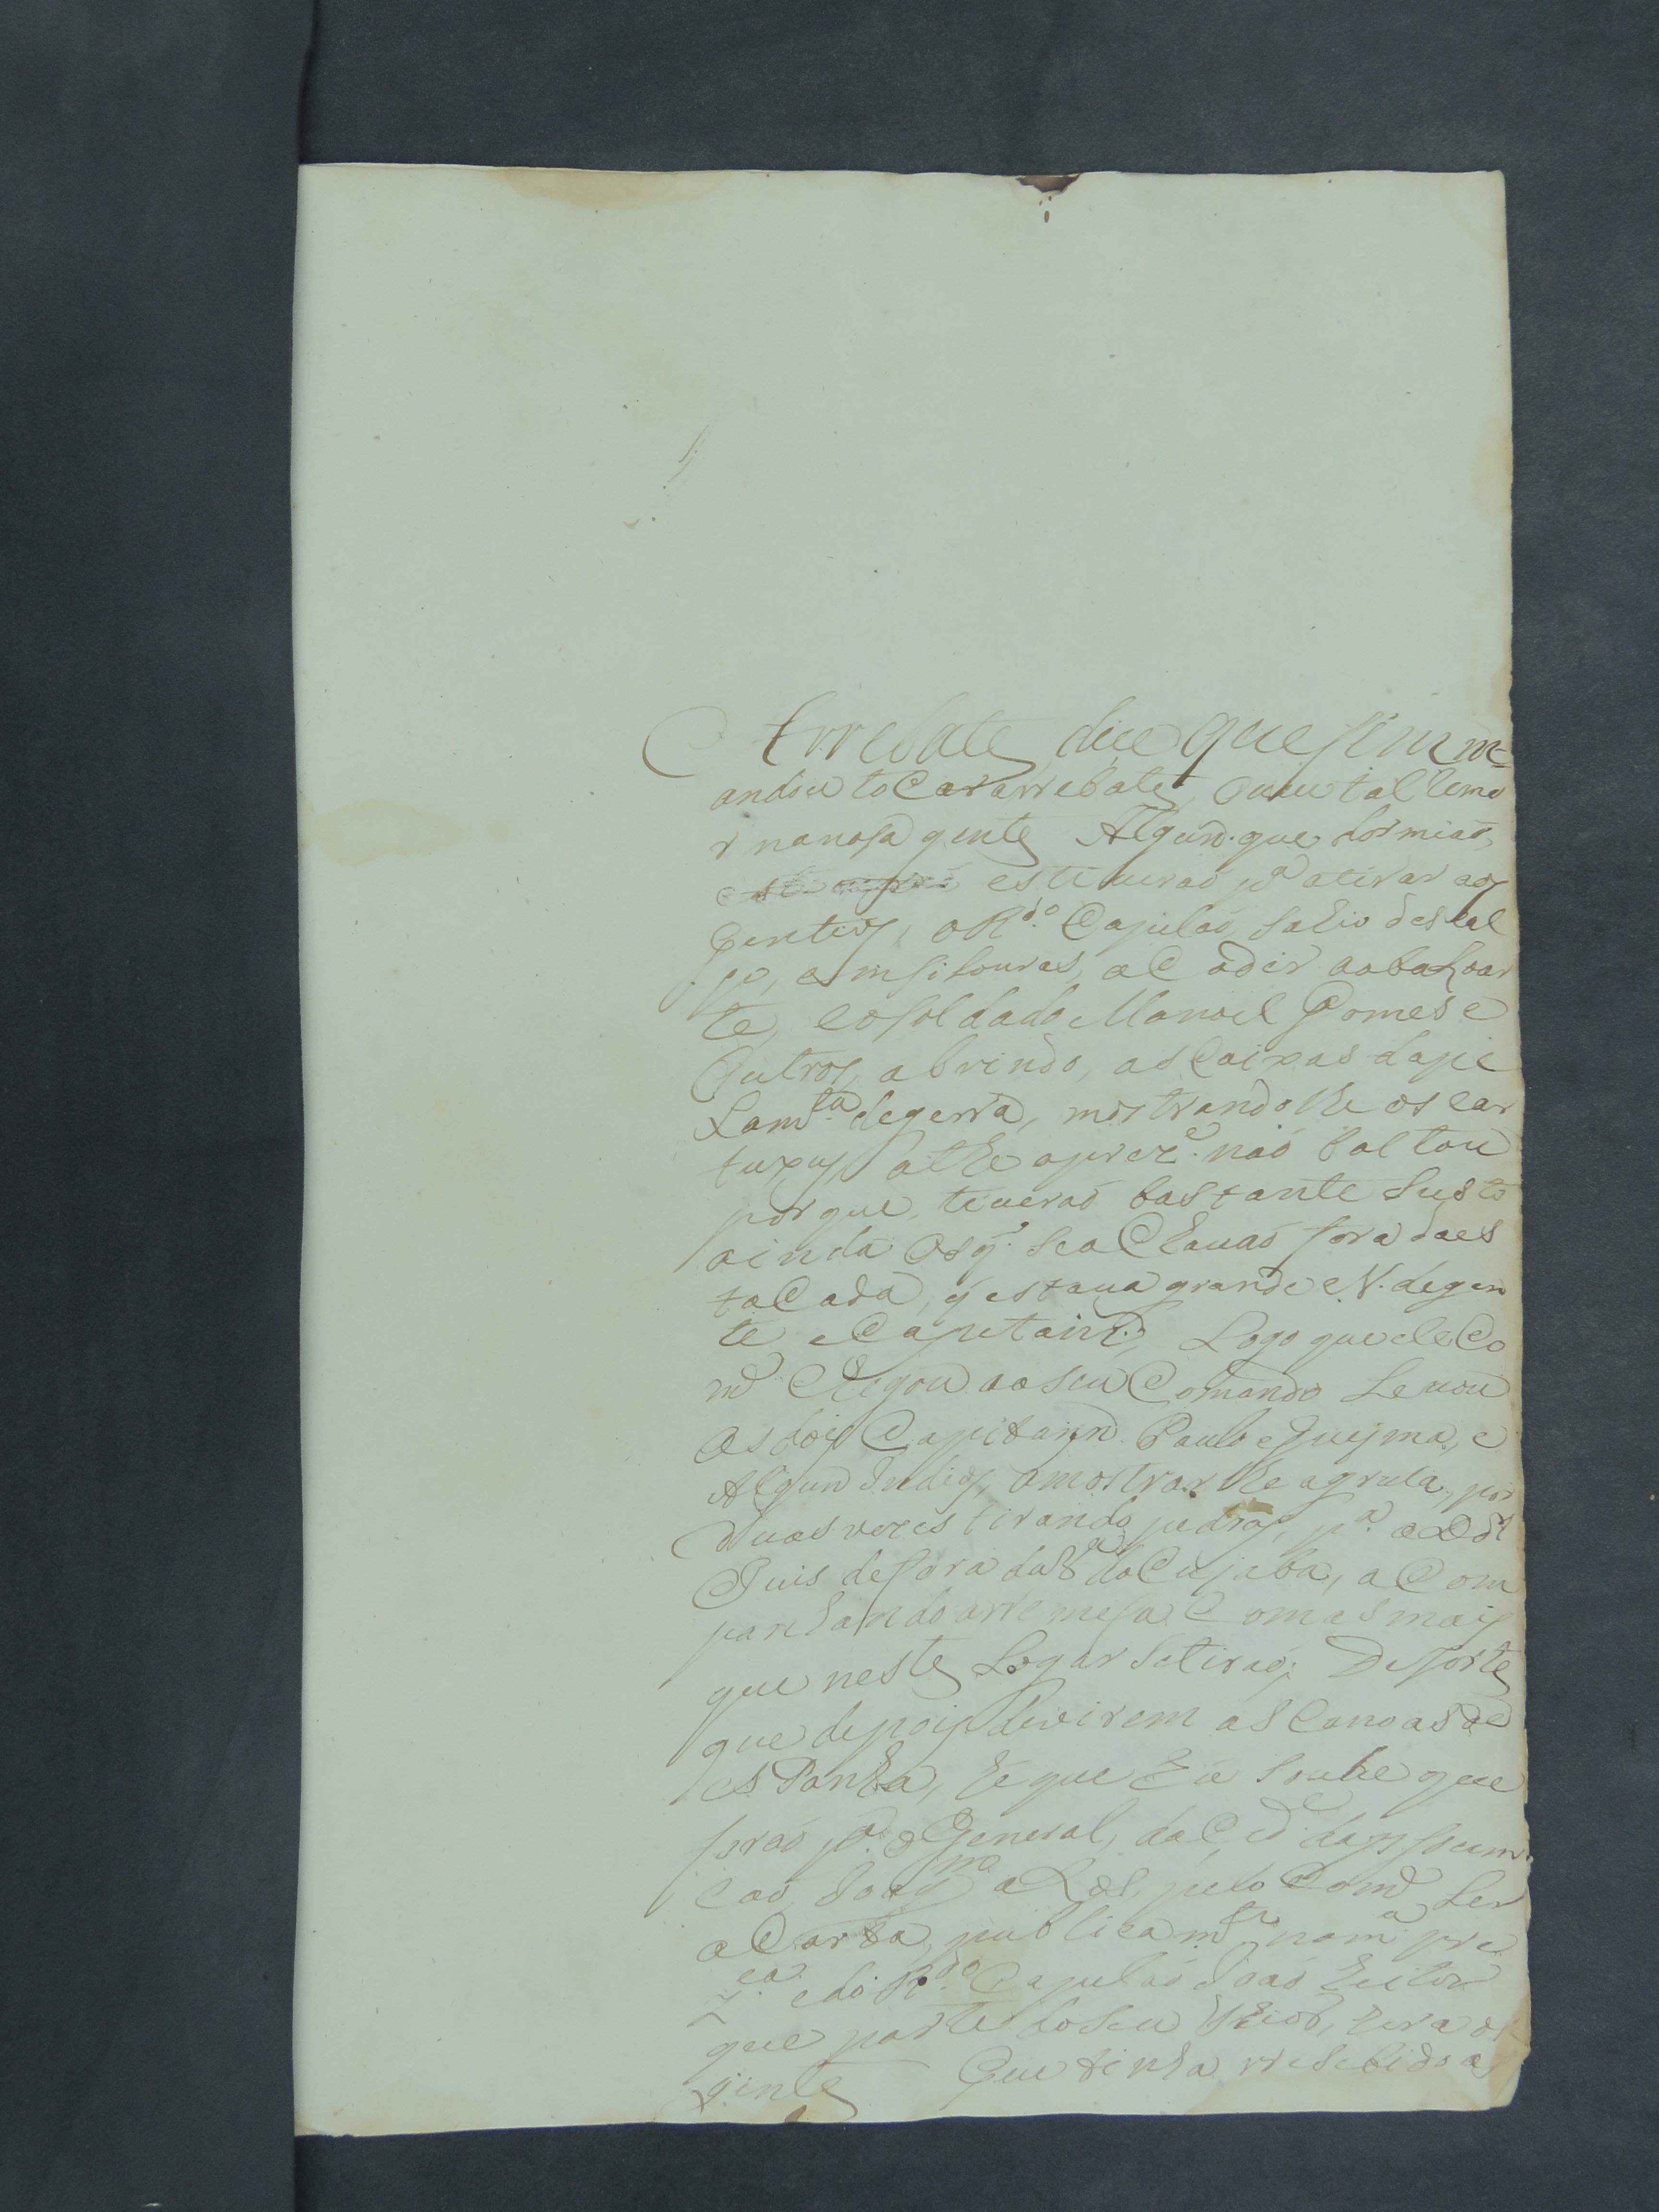 Arrebate, dice que sim m=
andou tocar arrebate, ouve tal temo
r na nosa gente Algund. que dormiaõ,
estiveraõ pª atirar aos
Gentios, o Rdo. Capelaõ, sahio descal
so, e em silouras, acodir ao baluar
te, e o soldado Manoel Gomes e
Outros, abrindo, as Caixas da pe
tam.ta de gerra, mostrandolhe os car
tuxus, athe a prez.e naõ faltou
porque, tiveraõ bastante Susto
ainda Os q. se achavaõ fora da es
tacada, q estava grande N. de gen
te e Capitaind, Logo que ele Co
md Chegou ao seu Comando Levou
Os dois Capitaind. Paulo e Queyma, e
Algund Indios, amostrarlhe a gruta, por
duas vezes tirando pedras, pª. o Dor
Juis de fora da Vª do Cujaba, acom
panhando a remesa Com as mais
que neste Logar se tiraõ; De sorte
que depois de virem as Canoas de
esPanha, he que eu soube que
foraõ pª. o General, da Cid.e da Assum
caõ, Joaqm
a Carta, publicam.te na mª pre
z.ca e do Rdo. Capelaõ Joaõ Leitor
que parte do seu era o
gente Que tinha resebido a